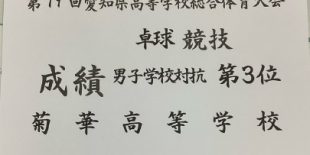 第79回愛知県高等学校総合体育大会
卓球 競技
成績 男子学校対抗 第3位
菊華高等学校